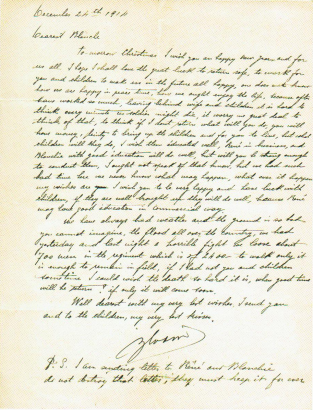 December 24th 1914
Dearest Blanche
to morrow Christmas I wish you an happy new year and for
us all. I hope I shall have the great luck to return safe, to work for
you and children to make us in the future all happy, one does not know
how we are happy in peace time, how we ought enjoy the life, some nights
have worked so much, leaving behind wife and children it is hard to
think every minute as soldier might die, it worry me great deal to
think of that, to think of the future what will you do, you will
have money, plenty to bring up the children and for you to live, but what
children will they do, I wish them educated well, René in business, and
Blanche with good education will do well, but will you be strong enough
to conduct them, I ought not speak of that now, but we had such
bad time here we never know what may happen, what ever it happen
my wishes are you I wish you to be very happy and have luck with
children, if they are well brought up they will do well, because René
may look your education in commercial way.
We have always bad weather and the ground is so bad
you cannot imagine, the flood all over the country, we had
yesterday and last night a horrible fight to loose about
700 men in the regiment which is of 2400 to watch only it
is enough to remain in field, if I had not you and children
sometime I would wish to death so hard it is, when good time
will be return? if only it will come soon.
Well dearest with my very best wishes, I send you
and to the children, my very best kisses.
Sylvain
P.S. I am sending letter to René and Blanche
do not destroy that letter, they must keep it for ever